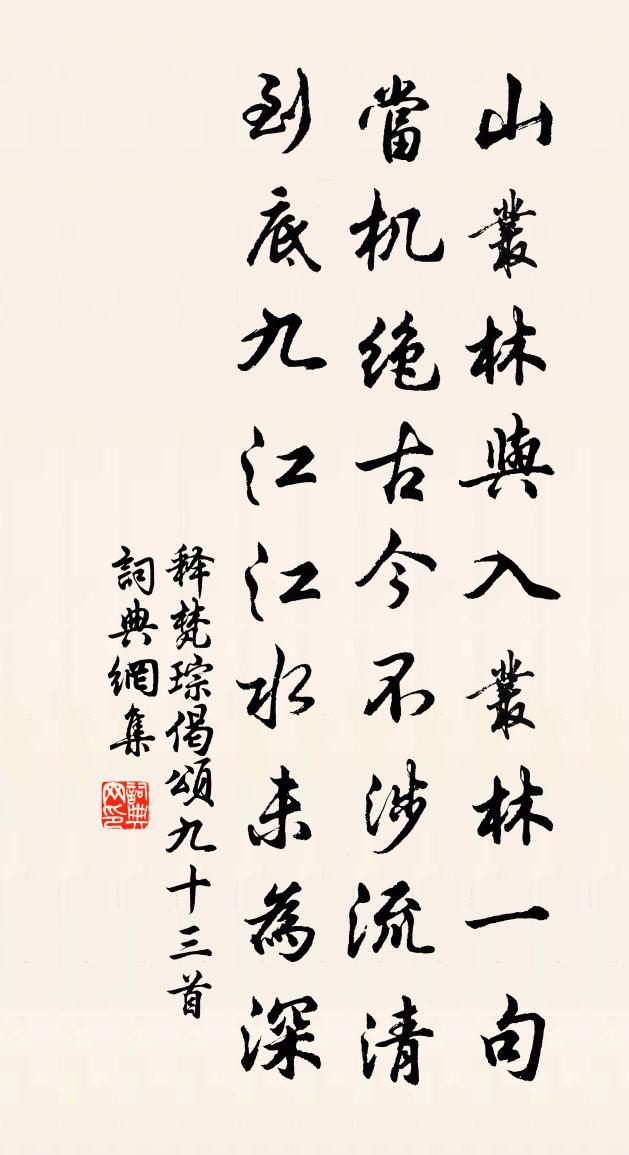 山叢林與入叢林一句
當机絶古今不涉流清
到底九江江水未為深
释梵琮偈頌九十三首
詞典網集
詞典网印